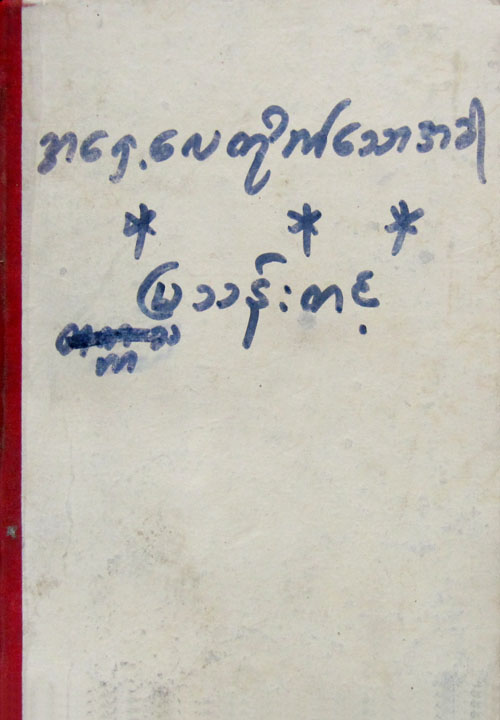 အရှေ့လေတိုက်သောအခါ
* * *
မြသန်းတင့်